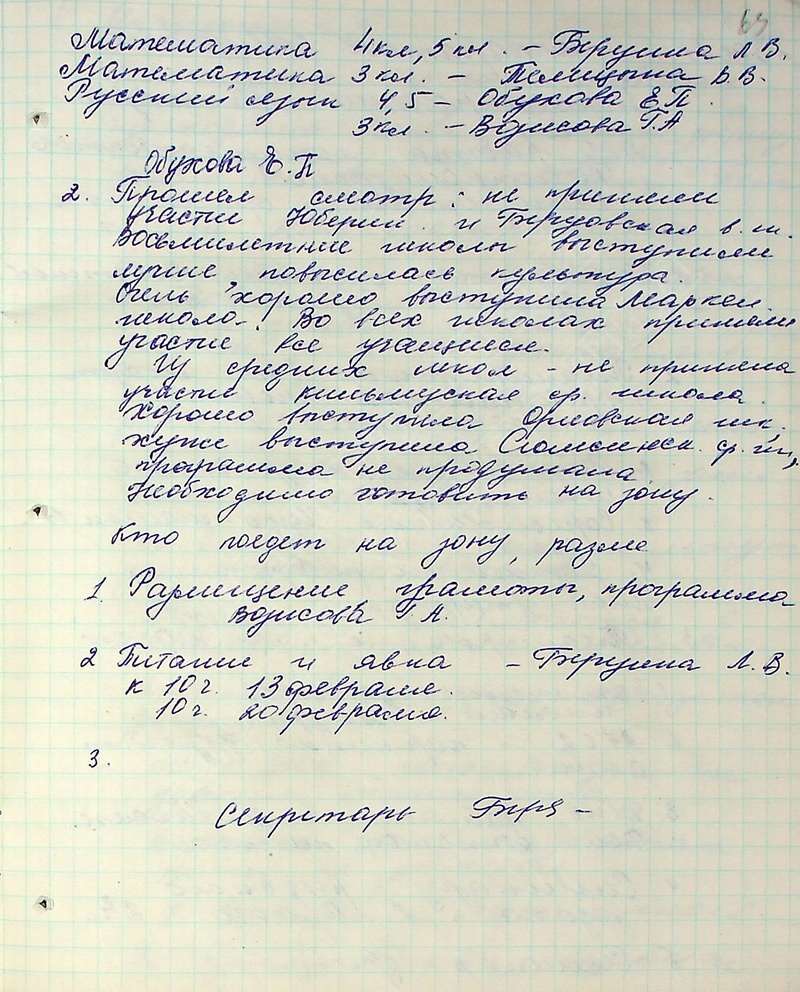 63
Математика 4кл, 5 кл. – Берзина Л В.
Математика 3 кл. – В.В.
Русский язык 4, 5 – Обухова Е П.
3кл. – Водисова Г. А
Обухова Е. П
2. Прошел смотр: не приняли
участи и в. ш.
Восьмилетние школы выступили
лучше повысилась культура.
Очень хорошо выступила Маркел.
школа. Во всех школах приняли
участие все учащиеся.
Из средних школ – не приняла
участи Кильмезская ср. школа.
Хорошо выступила Орловская шк.
хуже выступила Сюмсинск. ср. ш,
программа не продумана
Необходимо готовить на зону.
Кто поедет на зону, разме
1. Размещение грамоты, программа
Водисова Г А.
2 Питание и явка – Берзина Л. В.
к 10 ч. 13 февраля.
10 ч. 20 февраля.
3.
Секретарь